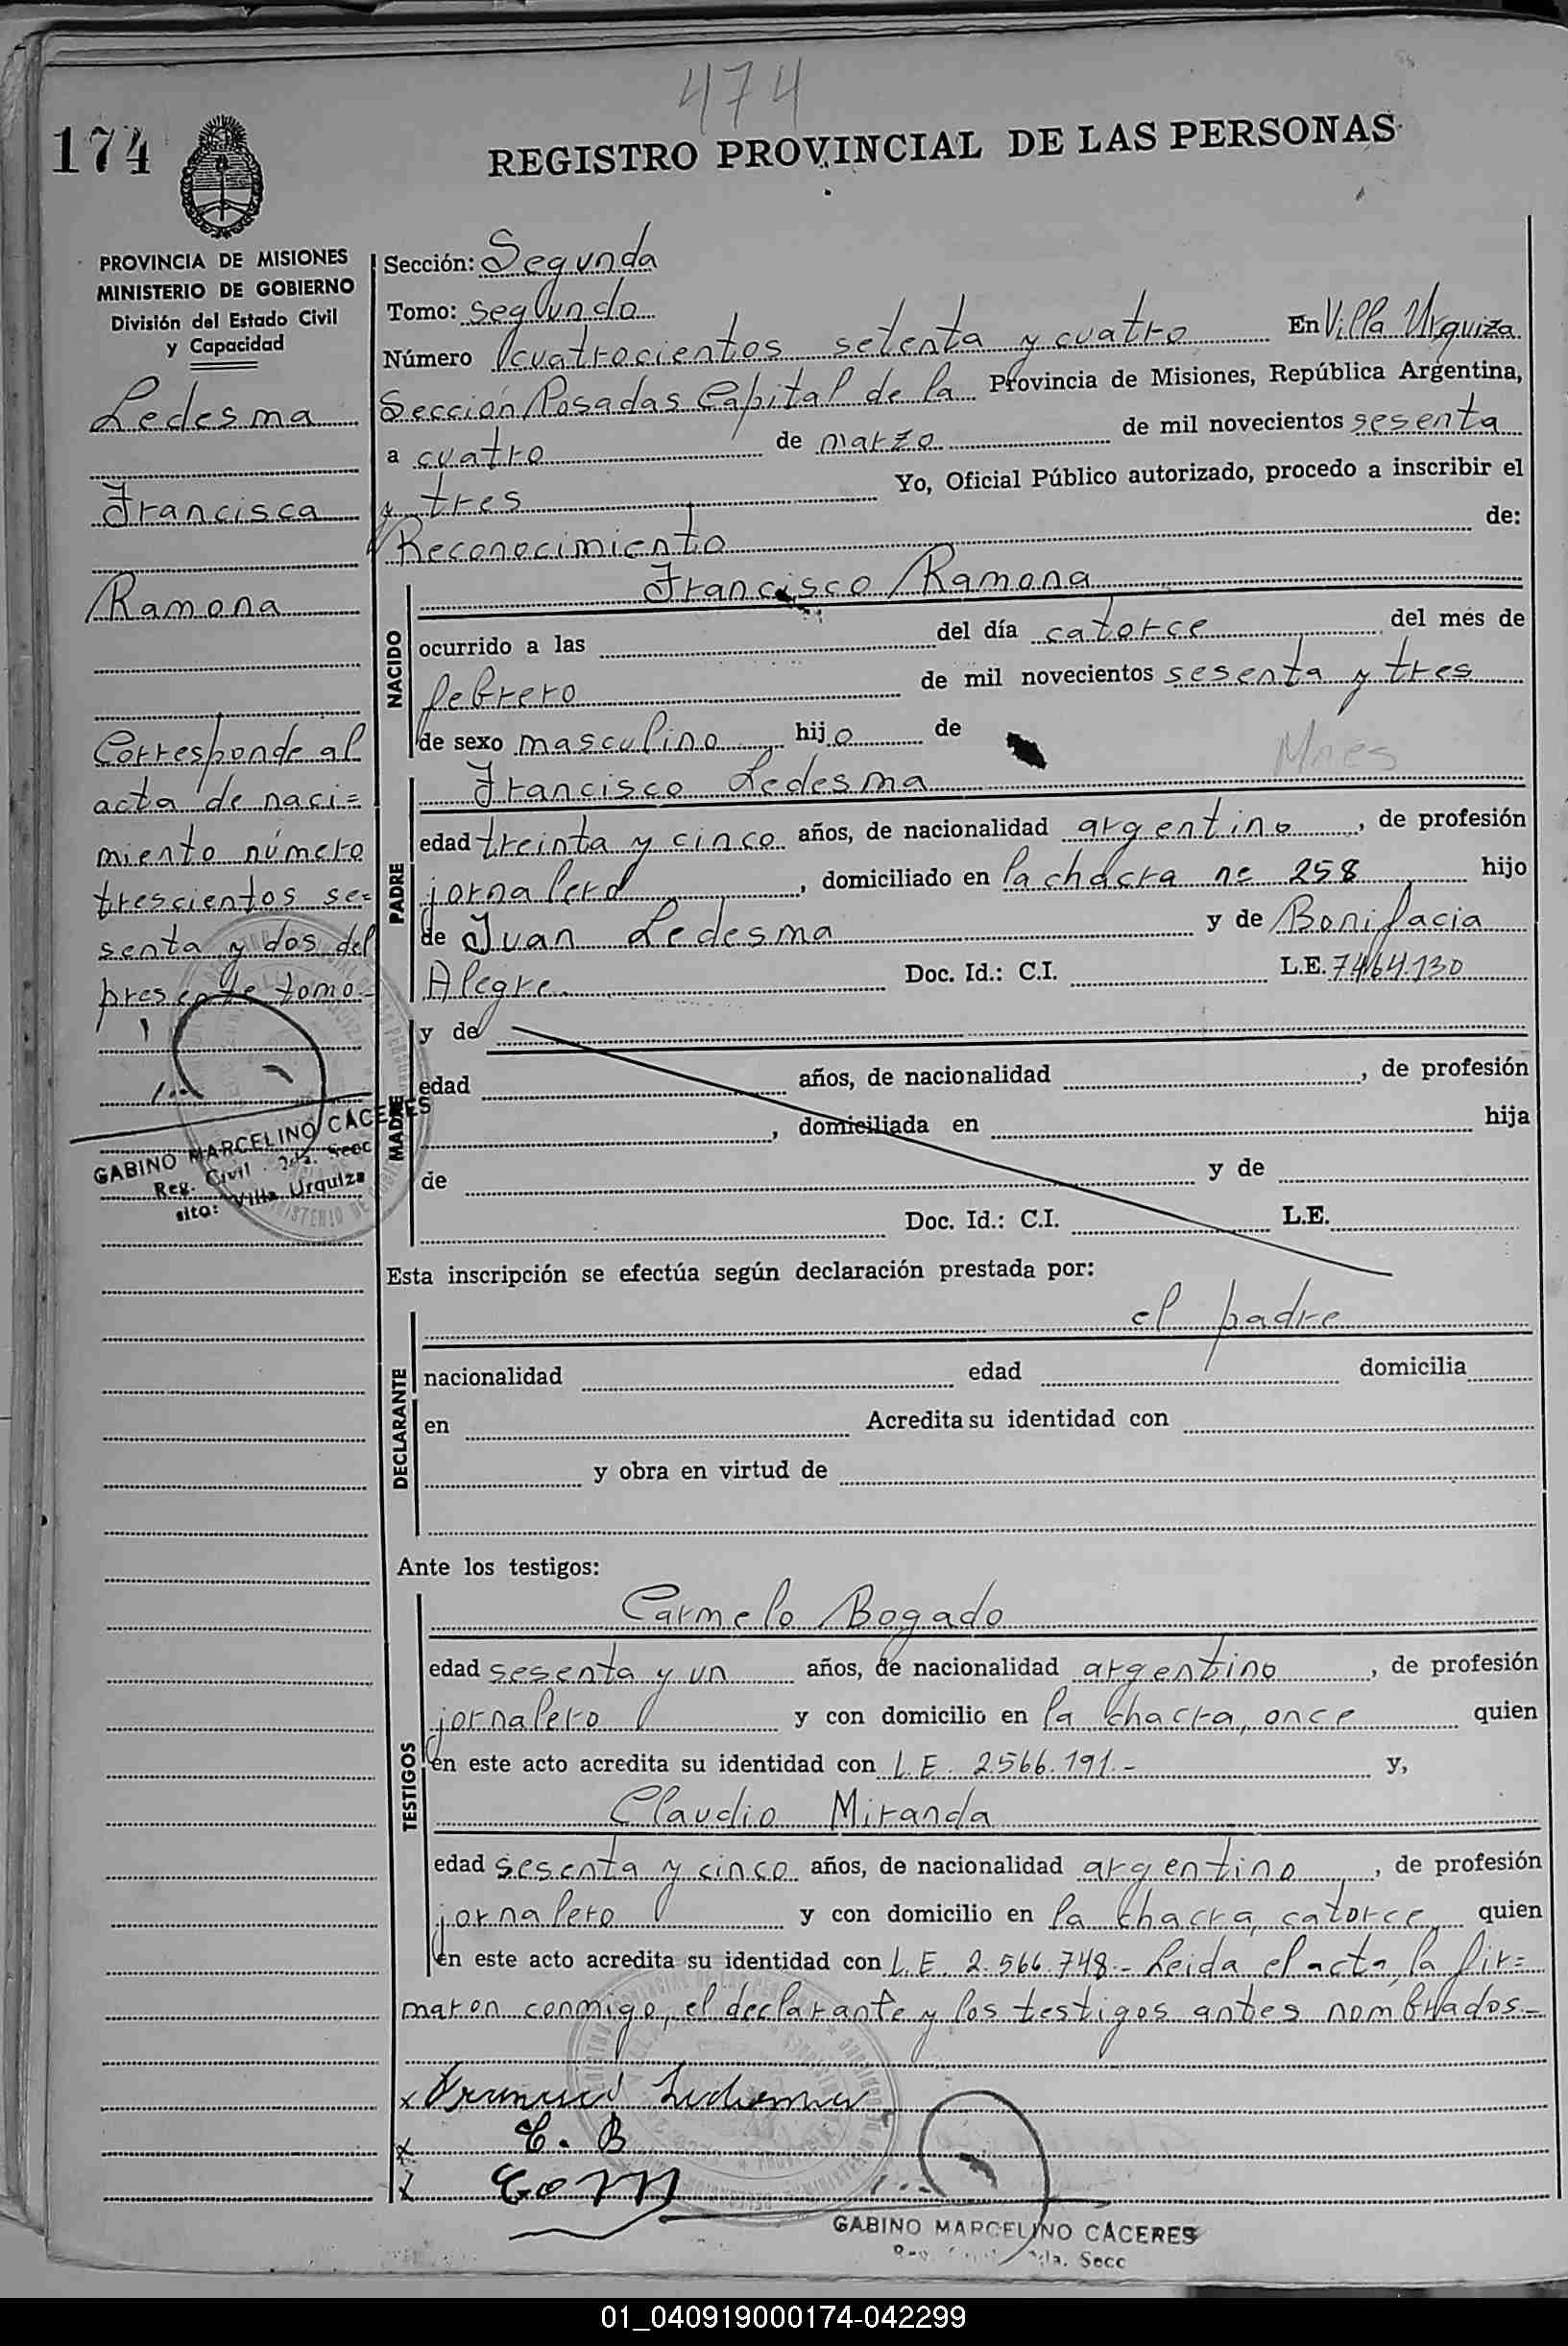 474
174
REGISTRO PROVINCIAL DE LAS PERSONAS
PROVINCIA DE MISIONES
MINISTERIO DE GOBIERNO
División del Estado Civil
y Capacidad
Ledesma
Francisca
Ramona
Corresponde al
acta de naci=
miento número
trescientos se=
senta y dos del
presente tomo-
GABINO MARCELINO CACERES
Reg. Civil 2da. Secc
sito: Villa Urquiza
Sección: Segunda
Tomo: segundo
Número cuatrocientos setenta y cuatro En Villa Urquiza
Sección Posadas Capital de la Provincia de Misiones, República Argentina,
a cuatro de marzo de mil novecientos sesenta
y tres Yo, Oficial Público autorizado, procedo a inscribir el
Reconocimiento de:
NACIDO
Francisco Ramona
ocurrido a las del día catorce del mes de
febrero de mil novecientos sesenta y tres
de sexo masculino hijo de
PADRE
Francisco Ledesma
edad treinta y cinco años, de nacionalidad argentino, de profesión
jornalero, domiciliado en la chacra nc 258 hijo
de Juan Ledesma y de Bonifacia
Alegre Doc. Id.: C.I. L.E. 7.464.130
MADRE
y de
edad años, de nacionalidad , de profesión
, domiciliada en hija
de y de
Doc. Id.: C.I. L.E.
Esta inscripción se efectúa según declaración prestada por:
DECLARANTE
el padre
nacionalidad edad domicilia
en Acredita su identidad con
y obra en virtud de
Ante los testigos:
TESTIGOS
Carmelo Bogado
edad sesenta y un años, de nacionalidad argentino, de profesión
jornalero y con domicilio en la chacra, once quien
en este acto acredita su identidad con L.E. 2.566.191.- y,
Claudio Miranda
edad sesenta y cinco años, de nacionalidad argentino, de profesión
jornalero y con domicilio en la chacra, catorce, quien
en este acto acredita su identidad con L.E. 2.566.748.- Leida el acta, la fir=
maron conmigo, el declarante y los testigos antes nombrados.-
x Francisco Ledesma
x C. B
x
GABINO MARCELINO CACERES
Reg. Civil 2da. Secc
01_040919000174-042299